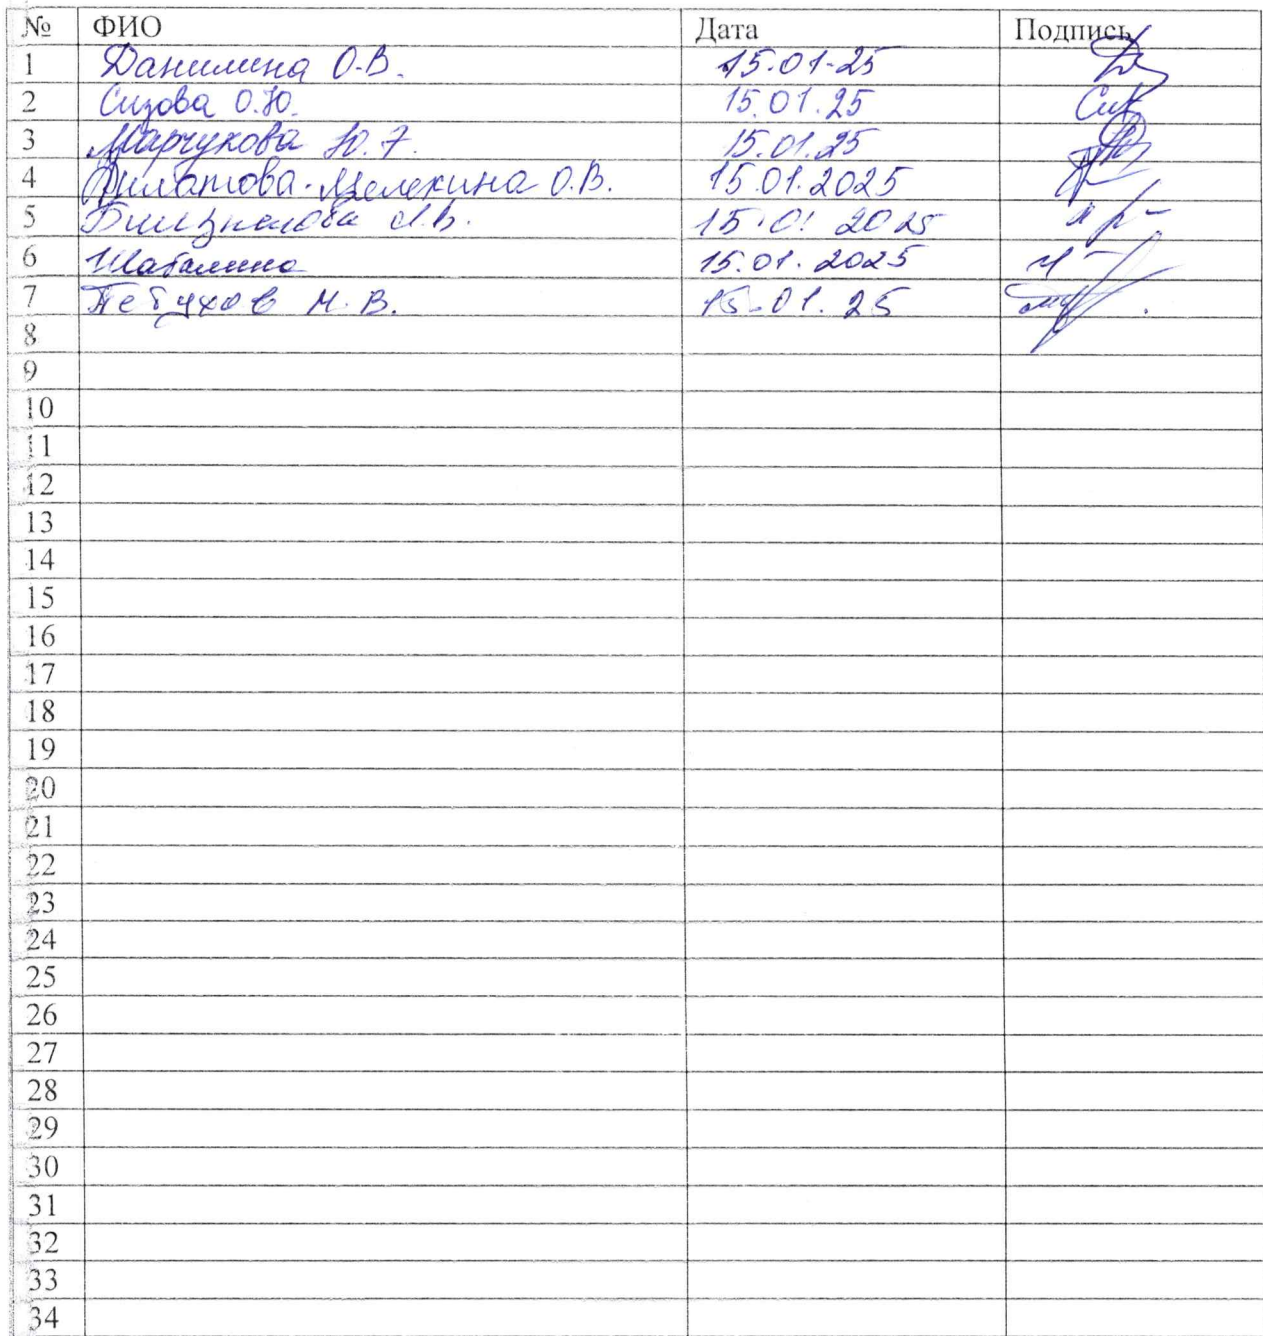 № ФИО Дата Подпись
1 Данилина О.В. 15.01.25
2 Сизова О.Ю. 15.01.25
3 Марчукова Ю.Г. 15.01.25
4 Филатова-Мелехина О.В. 15.01.2025
5 15.01 2025
6 Шабалина 15.01.2025
7 Петухов М.В. 15.01.25
8
9
10
11
12
13
14
15
16
17
18
19
20
21
22
23
24
25
26
27
28
29
30
31
32
33
34